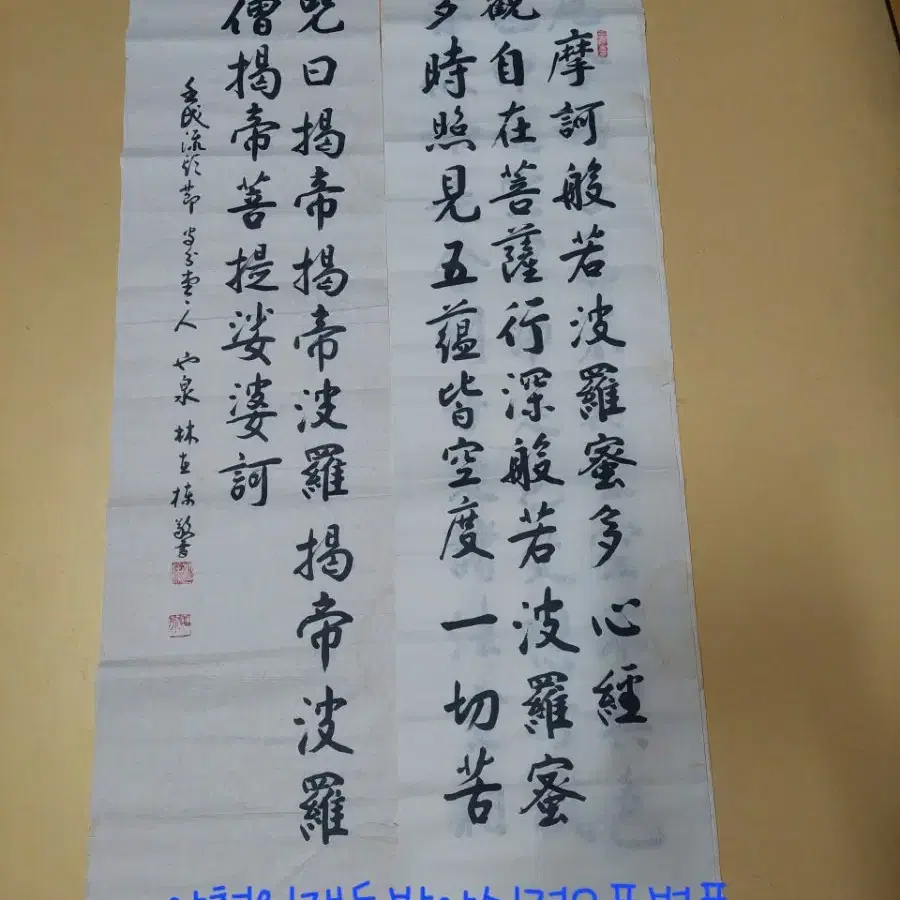 摩訶般若波羅蜜多心經
觀自在菩薩行深般若波羅蜜
多時照見五蘊皆空度一切苦
呪曰揭帝揭帝波羅揭帝波羅
僧揭帝菩提娑婆訶
壬戌流節人 也泉 林在棟敬書